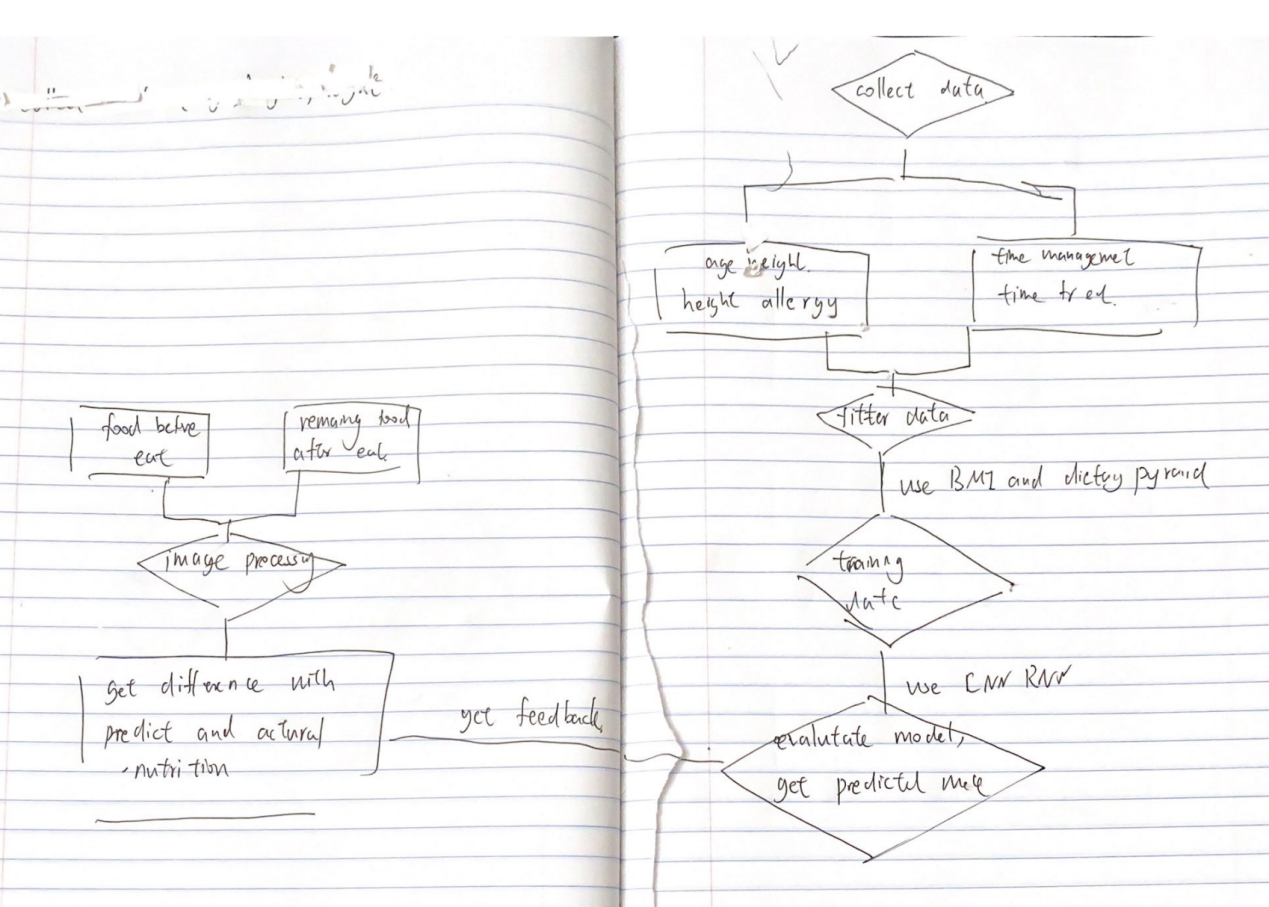 food before
eat
remaing food
after eat
image processing
get difference with
predict and actural
nutrition
get feedback
collect data
age weight.
height allergy
time managemet
time
fitter data
use BMI and dietay pyramid
training
use CNN RNN
evalutate model,
get predicted